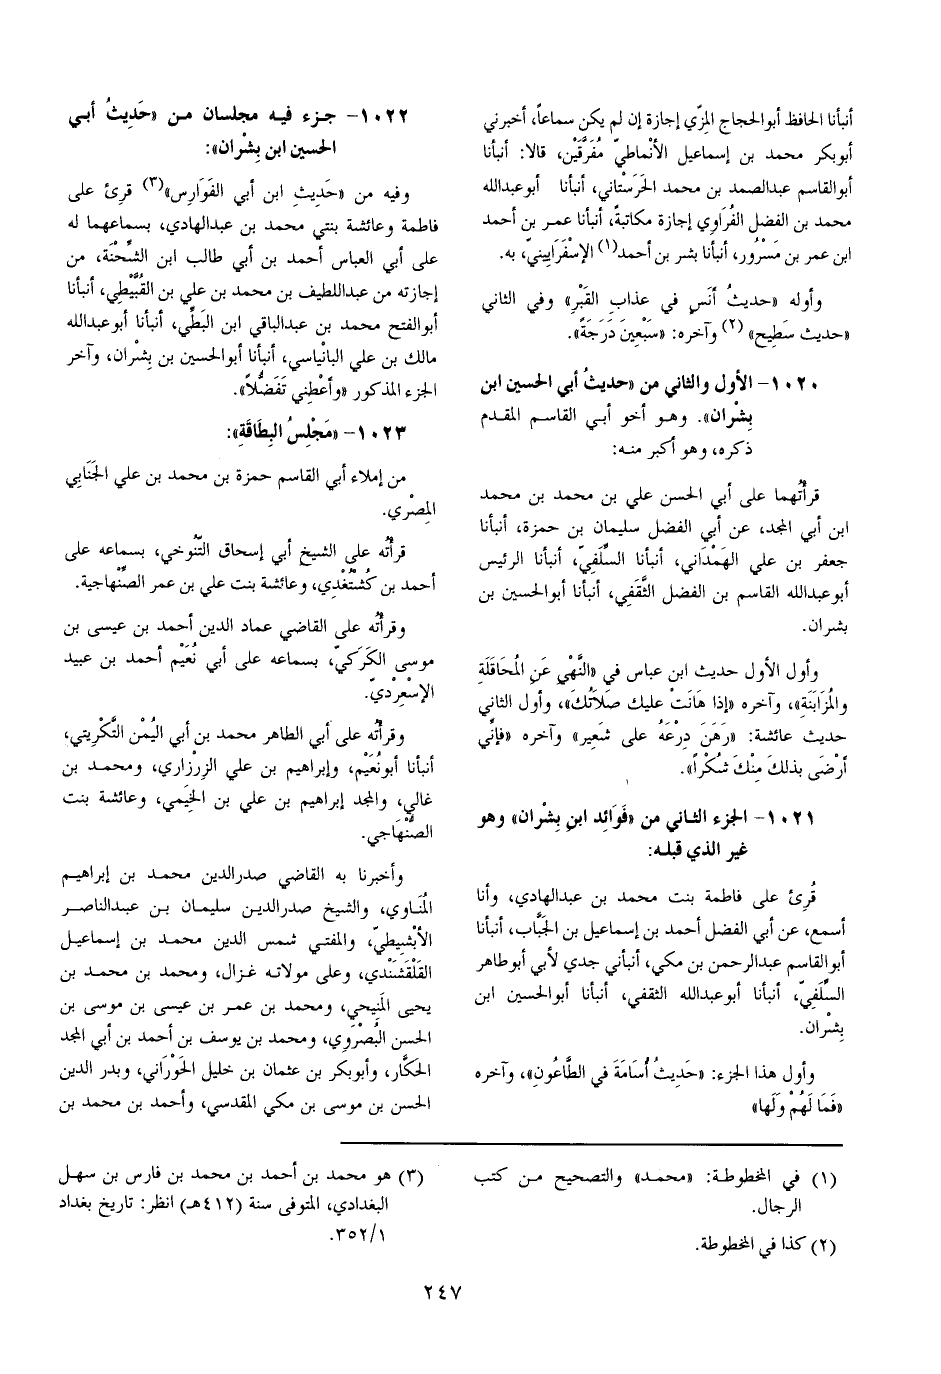 أنبأنا الحافظ أبوالحجاج المِزّي إجازة إن لم يكن سماعاً، أخبرني
أبوبكر محمد بن إسماعيل الأنْماطيّ مُفَرَّقَيْن، قالا: أنبأنا
أبوالقاسم عبدالصمد بن محمد الحَرَسْتاني، أنبأنا أبوعبدالله
محمد بن الفضل الفُرَاوِي إجازة مكاتبةً، أنبأنا عمر بن أحمد
ابن عمر بن مَسْرُور، أنبأنا بشر بن أحمد(١) الإسْفَرَايينيّ، به.
وأوله «حديثُ أنَسٍ في عذابِ القَبْرِ» وفي الثاني
«حديث سَطِيح» (٢) وآخره: «سَبْعِينَ دَرَجَةً».
١٠٢٠- الأول والثاني من «حديثُ أبي الحسين ابن
بِشْران». وهو أخو أبي القاسم المقدم
ذكره، وهو أكبر منه:
قرأتُهما على أبي الحسن علي بن محمد بن محمد
ابن أبي المجد، عن أبي الفضل سليمان بن حمزة، أنبأنا
جعفر بن علي الهَمْدَاني، أنبأنا السِّلَفِيّ، أنبأنا الرئيس
أبوعبدالله القاسم بن الفضل الثَّقَفِي، أنبأنا أبوالحسين بن
بشران.
وأول الأول حديث ابن عباس في «النَّهْي عَنِ المُحَاقَلَةِ
والمُزَابَنَةِ»، وآخره «إذا هَانَتْ عليك صَلَاتُكَ»، وأول الثاني
حديث عائشة: «رَهَنَ دِرْعَهُ على شَعِير» وآخره «فإنِّي
أرْضَى بذلكَ مِنْكَ شُكْراً».
١٠٢١- الجزء الثاني من «فَوَائِد ابنِ بِشْران» وهو
غير الذي قبله:
قُرِئ على فاطمة بنت محمد بن عبدالهادي، وأنا
أسمع، عن أبي الفضل أحمد بن إسماعيل بن الجَبَّاب، أنبأنا
أبوالقاسم عبدالرحمن بن مكي، أنبأني جدي لأبي أبوطاهر
السِّلَفِيّ، أنبأنا أبوعبدالله الثقفي، أنبأنا أبوالحسين ابن
بِشْران.
وأول هذا الجزء: «حَدِيثُ أُسَامَةَ في الطَّاعُونِ»، وآخره
«فَمَا لَهُمْ وَلَها»
١٠٢٢- جزء فيه مجلسان من «حَدِيثُ أبي
الحسين ابن بِشْران»:
وفيه من «حَدِيثِ ابن أبي الفَوَارِس»(٣) قرئ على
فاطمة وعائشة بنتي محمد بن عبدالهادي، بسماعهما له
على أبي العباس أحمد بن أبي طالب ابن الشِّحْنَة، من
إجازته من عبداللطيف بن محمد بن علي بن القُبَّيْطِي، أنبأنا
أبوالفتح محمد بن عبدالباقي ابن البَطِّي، أنبأنا أبوعبدالله
مالك بن علي البانْياسي، أنبأنا أبوالحسين بن بِشْران، وآخر
الجزء المذكور «وأعْطِني تَفَضُّلاً».
١٠٢٣- «مَجْلِسُ البِطَاقَةِ»:
من إملاء أبي القاسم حمزة بن محمد بن علي الجَنَابي
المِصْري.
قرأتُه على الشيخ أبي إسحاق التَّنُوخي، بسماعه على
أحمد بن كُشْتُغْدِي، وعائشة بنت علي بن عمر الصِّنْهاجية.
وقرأتُه على القاضي عماد الدين أحمد بن عيسى بن
موسى الكَرَكيّ، بسماعه على أبي نُعَيْم أحمد بن عبيد
الإسْعِرْديّ.
وقرأتُه على أبي الطاهر محمد بن أبي اليُمْن التَّكْرِيتي،
أنبأنا أبونُعَيْم، وإبراهيم بن علي الزِرْزاري، ومحمد بن
غالي، والمجد إبراهيم بن علي بن الخِيَمي، وعائشة بنت
الصِّنْهَاجي.
وأخبرنا به القاضي صدرالدين محمد بن إبراهيم
المُنَاوي، والشيخ صدرالدين سليمان بن عبدالناصر
الأَبْشِيطِيّ، والمفتي شمس الدين محمد بن إسماعيل
القَلْقَشَنْدي، وعلى مولاته غزال، ومحمد بن محمد بن
يحيى المَنِيحي، ومحمد بن عمر بن عيسى بن موسى بن
الحسن البُصْرَوِي، ومحمد بن يوسف بن أحمد بن أبي المجد
الحكَّار، وأبوبكر بن عثمان بن خليل الحَوْرَاني، وبدر الدين
الحسن بن موسى بن مكي المقدسي، وأحمد بن محمد بن
(١) في المخطوطة: «محمد» والتصحيح من كتب
الرجال.
(٢) كذا في المخطوطة.
(٣) هو محمد بن أحمد بن محمد بن فارس بن سهل
البغدادي، المتوفى سنة (٤١٢هـ) انظر: تاريخ بغداد
٣٥٢/١.
٢٤٧